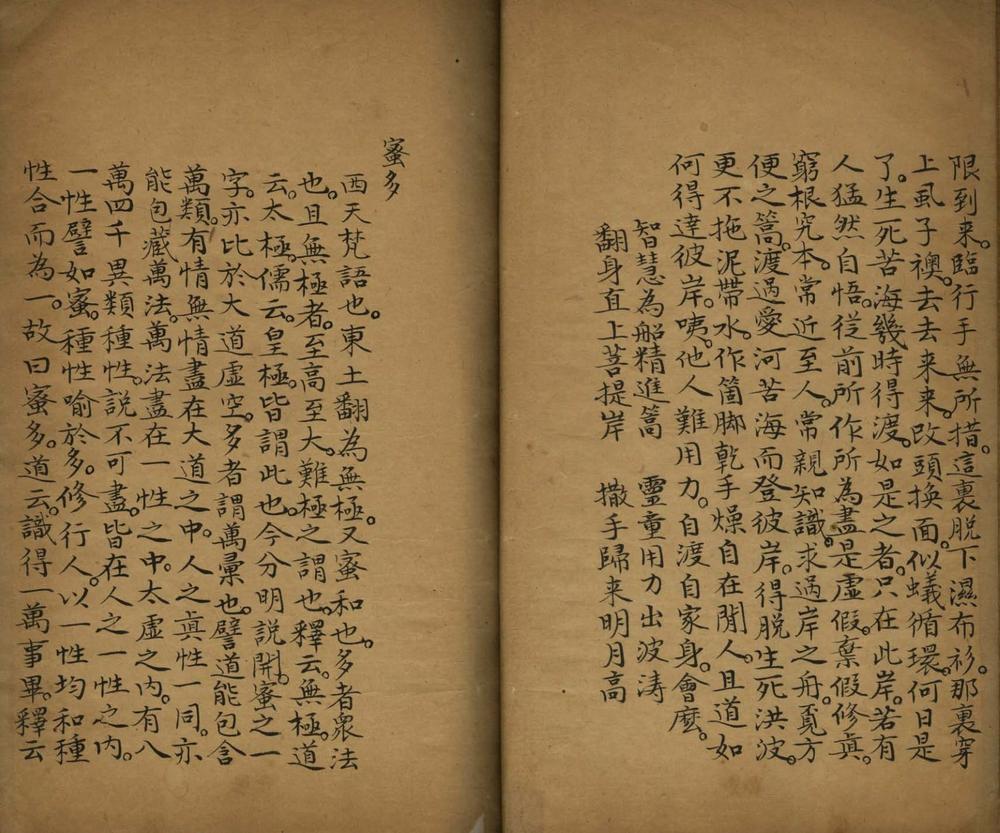 限到来。臨行手無所措。這裏脱下濕布衫。那裏穿
上虱子襖。去去来来。改頭換面。似蟻循環。何日是
了。生死苦海。幾時得渡。如是之者。只在此岸。若有
人猛然自悟。従前所作所為。盡是虚假。棄假修眞。
窮根究本。常近至人。常親知識。求過岸之舟。覔方
便之篙。渡過愛河苦海。而登彼岸。得脱生死洪波。
更不拖泥帶水。作箇脚乾手燥自在閒人。且道如
何得達彼岸。咦。他人難用力。自渡自家身。會麽。
智慧為船精進篙　靈童用力出波涛
翻身直上菩提岸　撒手歸来明月高
蜜多
西天梵語也。東土翻為無極。又蜜和也。多者衆法
也。且無極者。至高至大。難極之謂也。釋云。無極。道
云。太極。儒云。皇極。皆謂此也。今分明説開。蜜之一
字。亦比於大道虚空。多者謂萬彙也。譬道能包含
萬類。有情無情盡在大道之中。人之眞性一同。亦
能包藏萬法。萬法盡在一性之中。太虚之内。有八
萬四千異類種性。説不可盡。皆在人之一性之内。
一性譬如蜜。種性喻於多。修行人。以一性均和種
性合而為一。故曰蜜多。道云。識得一萬事畢。釋云